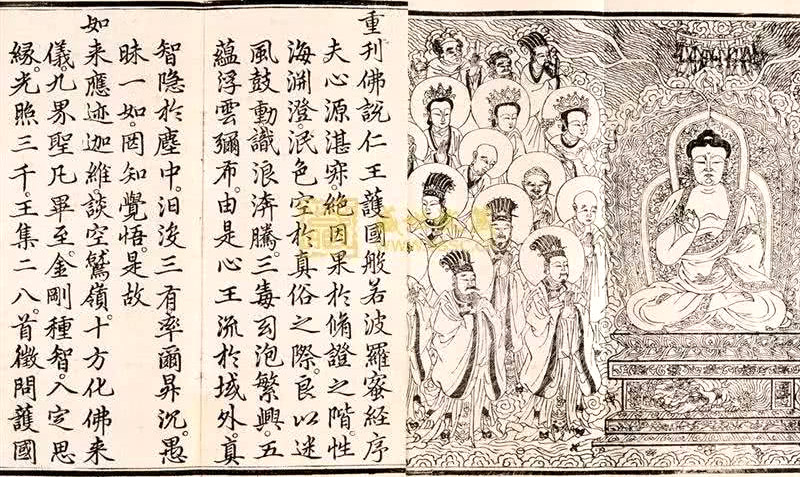 重刊佛說仁王護國般若波羅蜜經序
夫心源湛寂。絕因果於脩證之階。性
海淵澄。泯色空於真俗之際。良以迷
風鼓動。識浪渀騰。三毒幻泡繁興。五
蘊浮雲彌布。由是心王流於域外。真
智隱於塵中。汩沒三有。率爾昇沉。愚
昧一如。罔知覺悟。是故
如来應迹迦維。談空鷲嶺。十方化佛来
儀。九界聖凡畢至。金剛種智。入定思
緣。光照三千。王集二八。首徵問護國